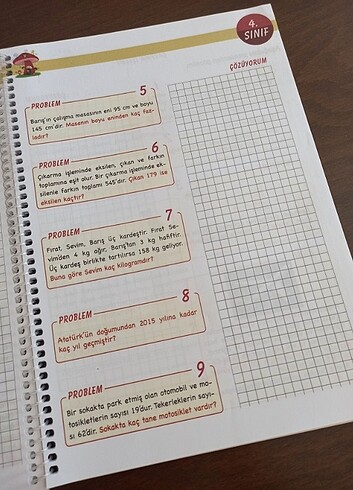 4.
SINIF
ÇÖZÜYORUM
PROBLEM 5
Barış'ın çalışma masasının eni 95 cm ve boyu
145 cm'dir. Masanın boyu eninden kaç faz-
ladır?
PROBLEM 6
Çıkarma işleminde eksilen, çıkan ve farkın
toplamına eşit olur. Bir çıkarma işleminde ek-
silenle farkın toplamı 545'dir. Çıkan 179 ise
eksilen kaçtır?
PROBLEM 7
Fırat, Sevim, Barış üç kardeştir. Fırat Se-
vim'den 4 kg ağır, Barış'tan 3 kg hafiftir.
Üç kardeş birlikte tartılırsa 158 kg geliyor.
Buna göre Sevim kaç kilogramdır?
PROBLEM 8
Atatürk'ün doğumundan 2015 yılına kadar
kaç yıl geçmiştir?
PROBLEM 9
Bir sokakta park etmiş olan otomobil ve mo-
tosikletlerin sayısı 19'dur. Tekerleklerin sayı-
sı 62'dir. Sokakta kaç tane motosiklet vardır?